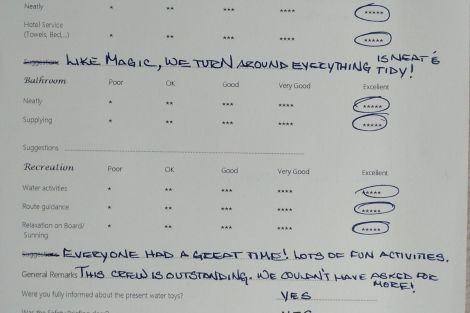 Neatly * ** *** **** *****
Hotel Service
(Towels, Bed,...) * ** *** **** *****
IS NEAT &
LIKE MAGIC, WE TURN AROUND EVERYTHING TIDY!
Bathroom Poor OK Good Very Good Excellent
Neatly * ** *** **** *****
Supplying * ** *** **** *****
Suggestions
Recreation Poor OK Good Very Good Excellent
Water activities * ** *** **** *****
Route guidance * ** *** **** *****
Relaxation on Board/
Sunning * ** *** **** *****
EVERYONE HAD A GREAT TIME! LOTS OF FUN ACTIVITIES.
General Remarks THIS CREW IS OUTSTANDING. WE COULDN'T HAVE ASKED FOR
MORE!
Were you fully informed about the present water toys? YES